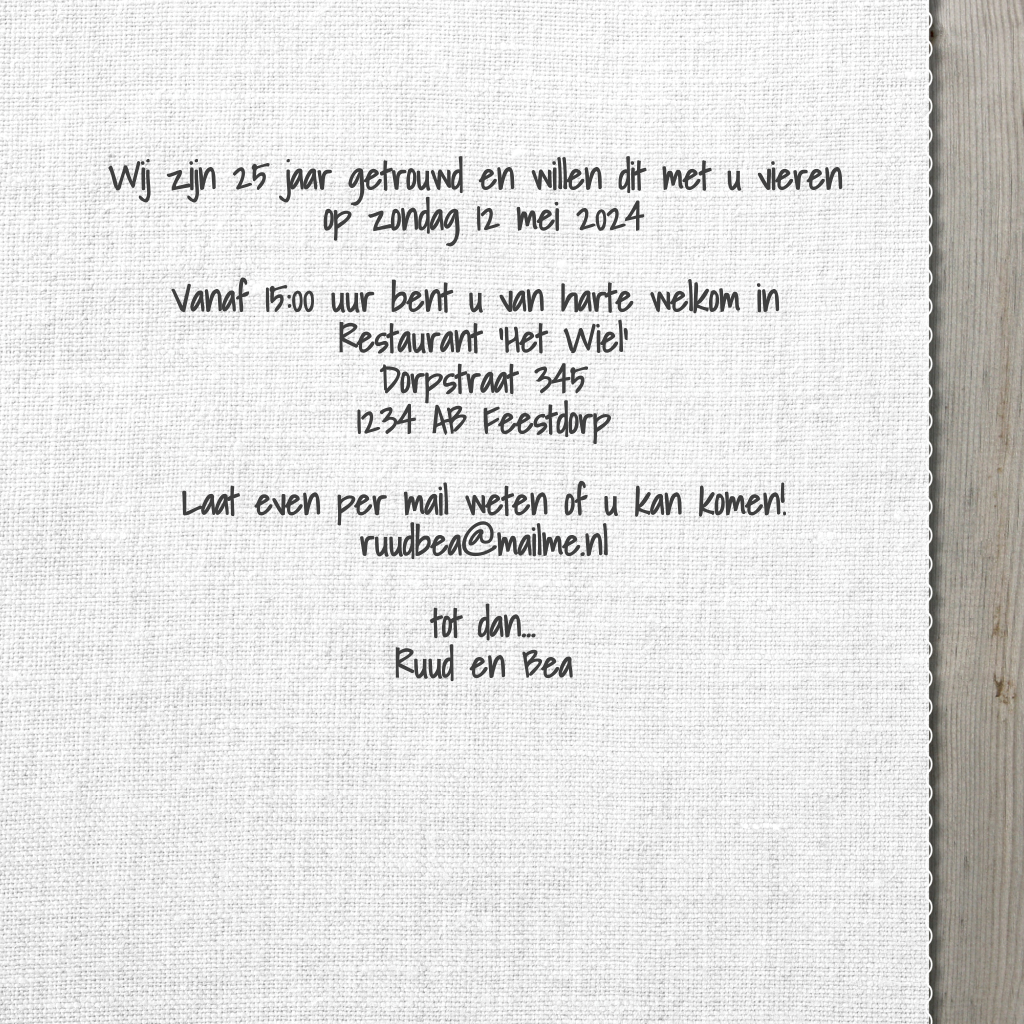 Wij zijn 25 jaar getrouwd en willen dit met u vieren
op zondag 12 mei 2024
Vanaf 15:00 uur bent u van harte welkom in
Restaurant 'Het Wiel'
Dorpstraat 345
1234 AB Feestdorp
Laat even per mail weten of u kan komen!
ruudbea@mailme.nl
tot dan...
Ruud en Bea